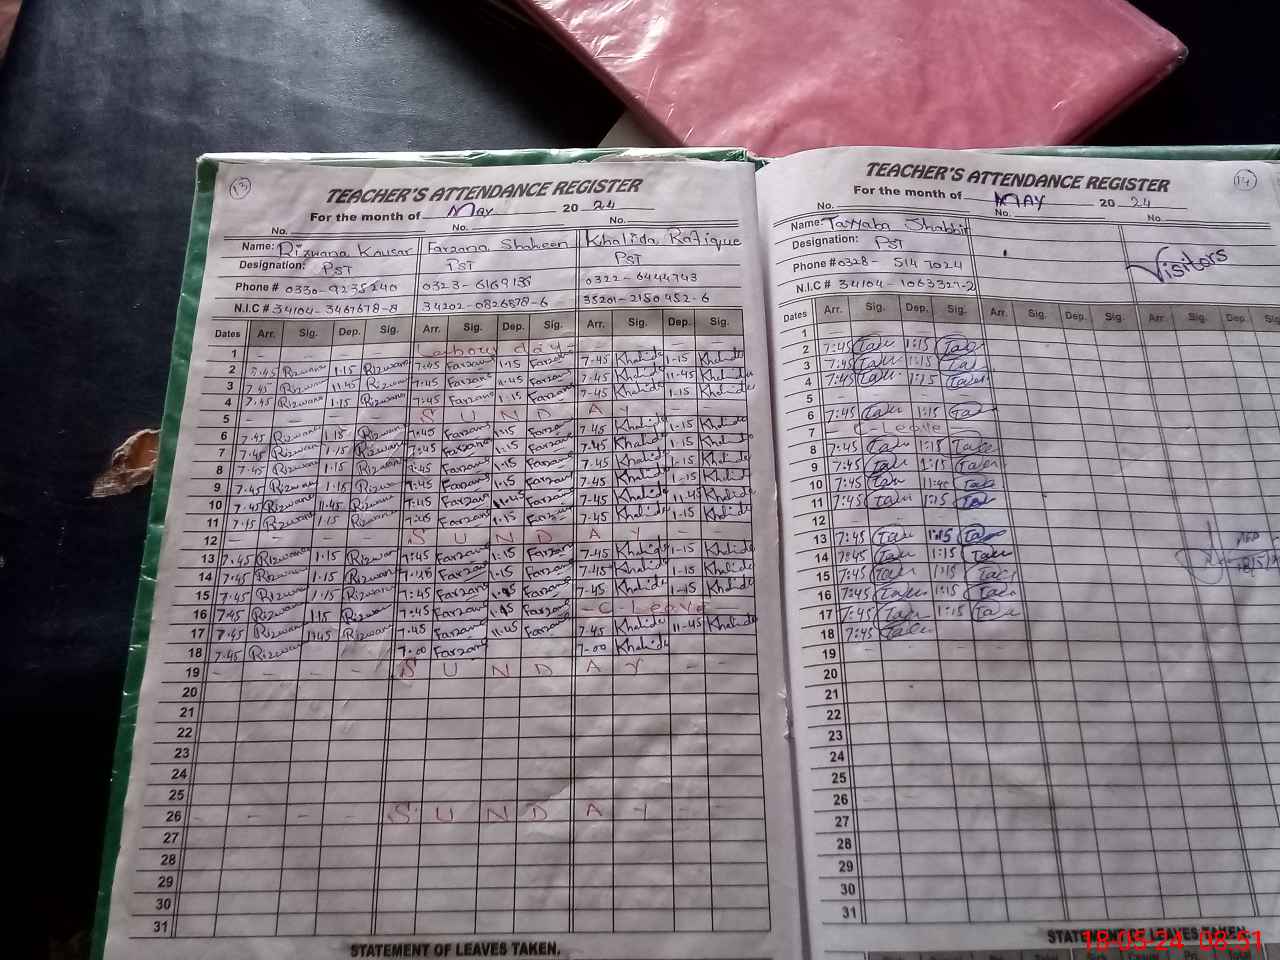 13
TEACHER'S ATTENDANCE REGISTER
For the month of May 2024
No. No. No.
Name: Rizwana Kausar Farzana Shaheen Khalida Rafique
Designation: PST PST PST
Phone # 0322-6444743
N.I.C # 34104-3467678-8 34202-0826878-6 35201-2150452-6
Dates Arr. Sig. Dep. Sig. Arr. Sig. Dep. Sig. Arr. Sig. Dep. Sig.
1 Labour day
2 7:45 Rizwana 1:15 Rizwana 7:45 Farzana 1:15 Farzana 7-45 Khalida 1-15 Khalida
3 7:45 Rizwana 11:45 Rizwana 7:45 Farzana 11:45 Farzana 7-45 Khalida 11-45 Khalida
4 7:45 Rizwana 1:15 Rizwana 7:45 Farzana 1:15 Farzana 7-45 Khalida 1-15 Khalida
5 SUNDAY
6 7:45 Rizwana 1:15 Rizwana 7:45 Farzana 1:15 Farzana 7-45 Khalida 1-15 Khalida
7 7:45 Rizwana 1:15 Rizwana 7:45 Farzana 1:15 Farzana 7-45 Khalida 1-15 Khalida
8 7:45 Rizwana 1:15 Rizwana 7:45 Farzana 1:15 Farzana 7-45 Khalida 1-15 Khalida
9 7:45 Rizwana 1:15 Rizwana 7:45 Farzana 1:15 Farzana 7-45 Khalida 1-15 Khalida
10 7:45 Rizwana 11:45 Rizwana 7:45 Farzana 11:45 Farzana 7-45 Khalida 11-45 Khalida
11 7:45 Rizwana 1:15 Rizwana 7:45 Farzana 1:15 Farzana 7-45 Khalida 1-15 Khalida
12 SUNDAY
13 7:45 Rizwana 1:15 Rizwana 7:45 Farzana 1:15 Farzana 7-45 Khalida 1-15 Khalida
14 7:45 Rizwana 1:15 Rizwana 7:45 Farzana 1:15 Farzana 7-45 Khalida 1-15 Khalida
15 7:45 Rizwana 1:15 Rizwana 7:45 Farzana Farzana 7-45 Khalida 1-15 Khalida
16 7:45 Rizwana 1:15 Rizwana 7:45 Farzana Farzana C-Leave
17 7:45 Rizwana 11:45 Rizwana 7:45 Farzana 11:45 Farzana 7-45 Khalida 11-45 Khalida
18 7:45 Rizwana 7:00 Farzana 7-00 Khalida
19 SUNDAY
20
21
22
23
24
25
26 SUNDAY
27
28
29
30
31
STATEMENT OF LEAVES TAKEN.
14
TEACHER'S ATTENDANCE REGISTER
For the month of MAY 2024
No. No. No.
Name: Tayyaba Shabbir
Designation: PST
Visitors
Phone # 0328-5147024
N.I.C # 34104-1063327-2
Dates Arr. Sig. Dep. Sig. Arr. Sig. Dep. Sig. Arr. Sig. Dep. Sig.
1
2 7:45 1:15
3 7:45 1:15
4 7:45 1:15
5
6 7:45 1:15
7 C-Leave
8 7:45 1:15
9 7:45 1:15
10 7:45
11 7:45 1:15
12
13 7:45 1:15
14 7:45 1:15
15 7:45 1:15
16 7:45 1:15
17 7:45 1:15
18 7:45
19
20
21
22
23
24
25
26
27
28
29
30
31
STATEMENT OF LEAVES TAKEN.
18-05-24 08:51